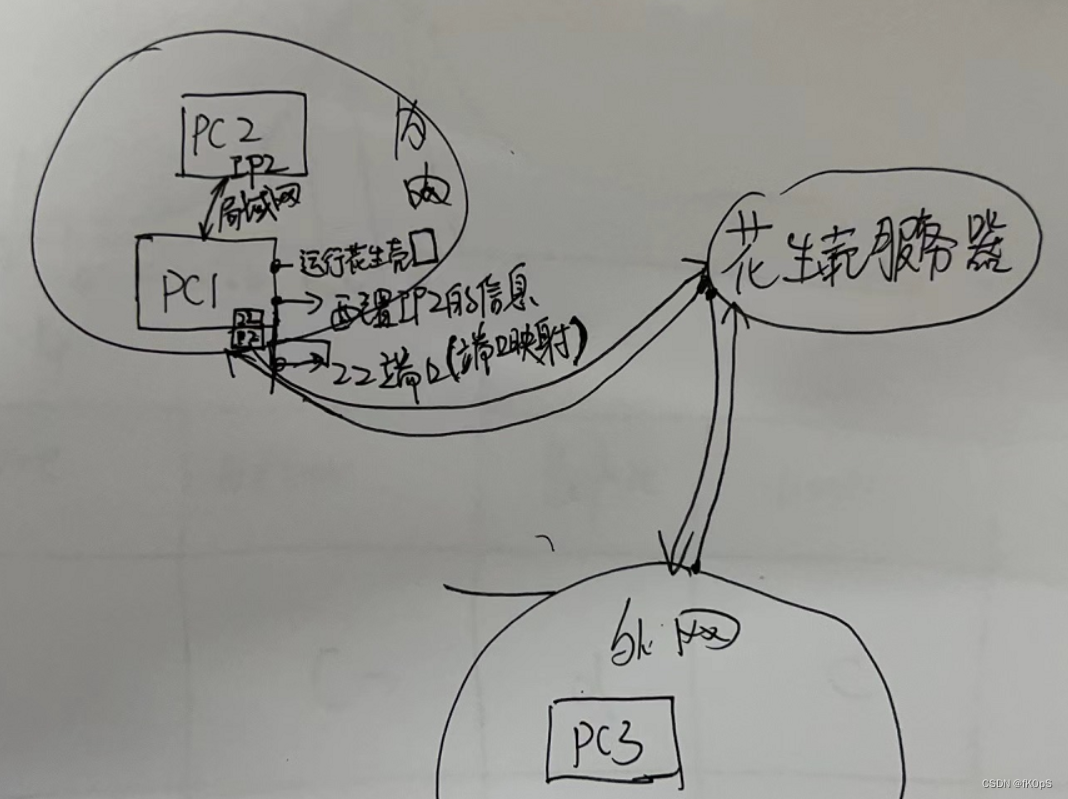 PC2
IP2
内网
局域网
PC1
运行花生壳
配置IP2的信息
22
22端口(端口映射)
花生壳服务器
外网
PC3
CSDN @fKOpS